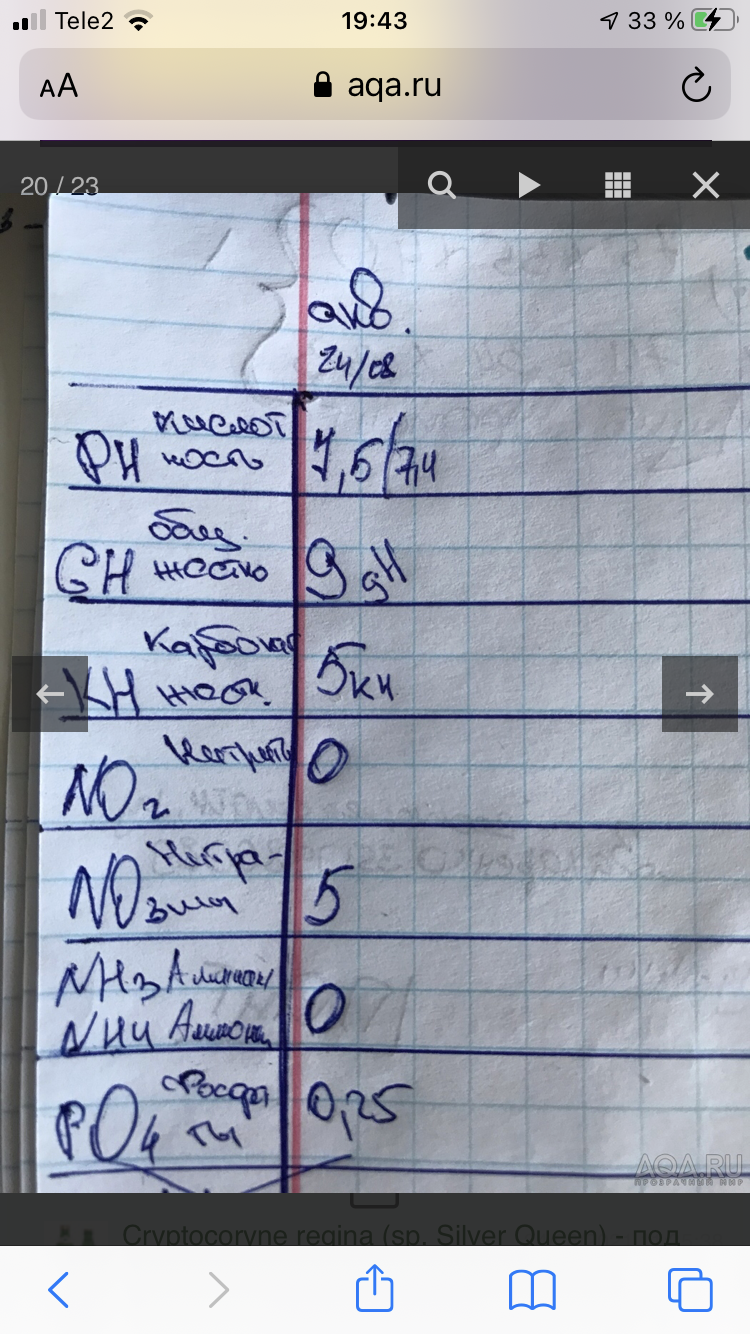 Tele2 19:43 33 %
AA aqa.ru
20 / 23
акв.
24/08
PH кислот
ность 7,5/7,4
GH общ.
жестко 9 dH
KH Карбонат
жестк. 5 кн
NO2 Нитриты 0
NO3 Нитра-
ты 5
NH3 Аммиак/
NH4 Аммоний 0
PO4 Фосфа
ты 0,25
AQA.RU
ПРОЗРАЧНЫЙ МИР
Cryptocoryne regina (sp. Silver Queen) - под